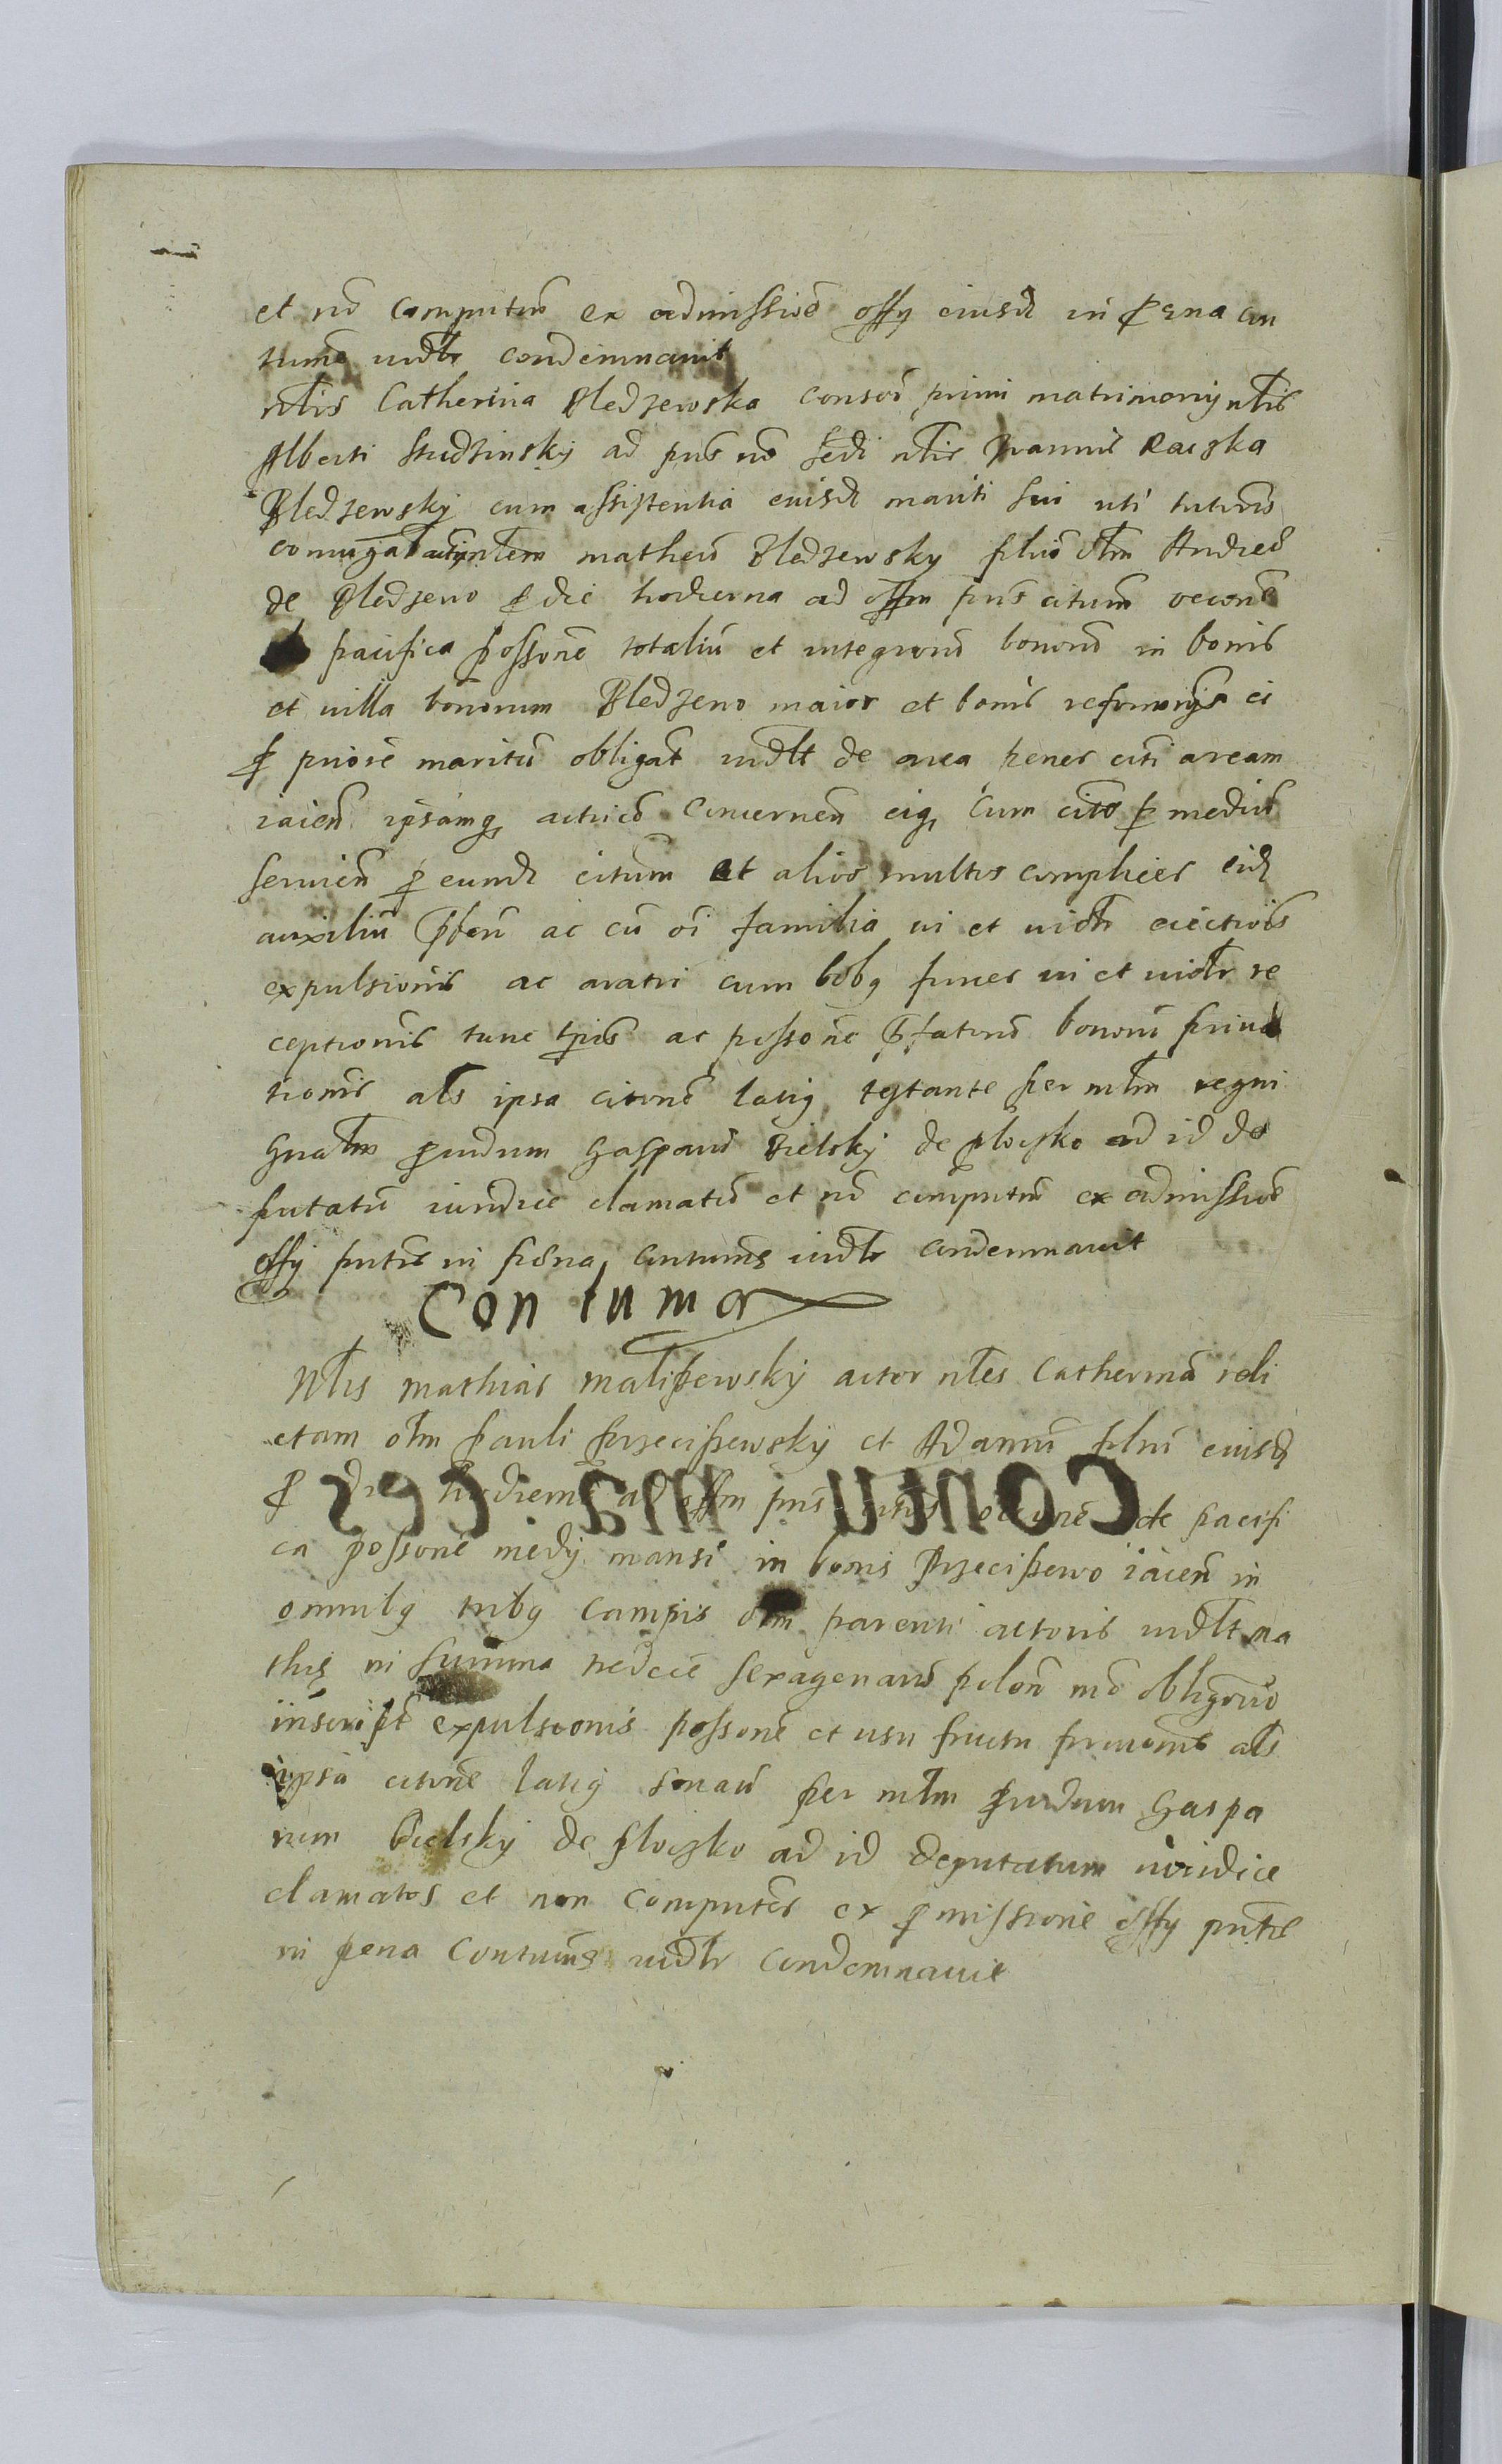 et nō computū ex admissioē offy eiusdē in pena con
tumā iudlr condemnauit
nlis Catherina Bledzewska consors primi matrimony nlis
Alberti Studzinsky ad pns vō sedi nlis Joannis Raczka
Bledzewsky cum assistentia eiusdē mariti sui uti tutoris
coniugal nlem matheū Bledzewsky filiū olim Andreē
de Bledzewo p die hodierna ad offm pns citum
pacifica possone totaliū et integrorū bonorū in bonis
et villa bonorum Bledzewo maior et bonis reformorys ei
p priorē maritū obligat vidlt de area penes citi aream
iaceñ ipsamq actricē concerneñ eiq cum cito p mediū
seruieñ p eundē citum et alios multos complices eidē
auxiliū pbeñ ac cū oi familia vi et violtr eiectiois
expulsionis ac aratri cum bobq funes vi et violtr re
ceptionis tunc tpis ac possone pfatorū bonorū priua
tionis als ipsa citone latiq testante per mlm regni
gnalm pudum Gasparū Bielsky de plocsko ad id de
putatū iuridice clamatū et nō computū ex admissioē
offy pntis in pena contumā iudlr condemnauit
Con tuma
Nlis mathias malissewsky actor nles Catherinā reli
ctam olm pauli przecissewsky et Adamū filiū eiusdē
p die hodierna ad offm pns de pacifi
ca possone medy mansi in bonis przecissewo iaceñ in
omnibq tribq campis olm parenti actoris vidlt Ma
thię in summa tredecē sexagenarū poloñ mō obligorio
inscript expulsionis possone et usu fructu priuonis als
ipsa citone latiq sonañ per mlm pudum Gaspa
rum Bielsky de plocsko ad id deputatum iuridice
clamatos et non computes ex pmissione offy pntis
in pena contumā iudlr condemnauit